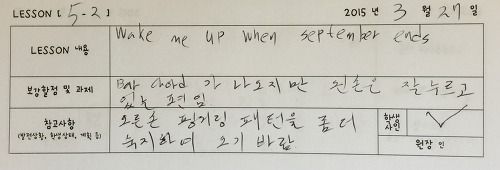 LESSON [ 5-2 ] 2015 년 3 월 27 일
LESSON 내용 Wake me up when september ends
보강할점 및 과제 Bar chord 가 나오지만 왼손은 잘 누르고
있는 편임.
참고사항 오른손 핑거링 패턴을 좀 더 학생
(발전상황, 학생상태, 계획 등) 숙지하여 오기 바람 사인 ✓
원장 인